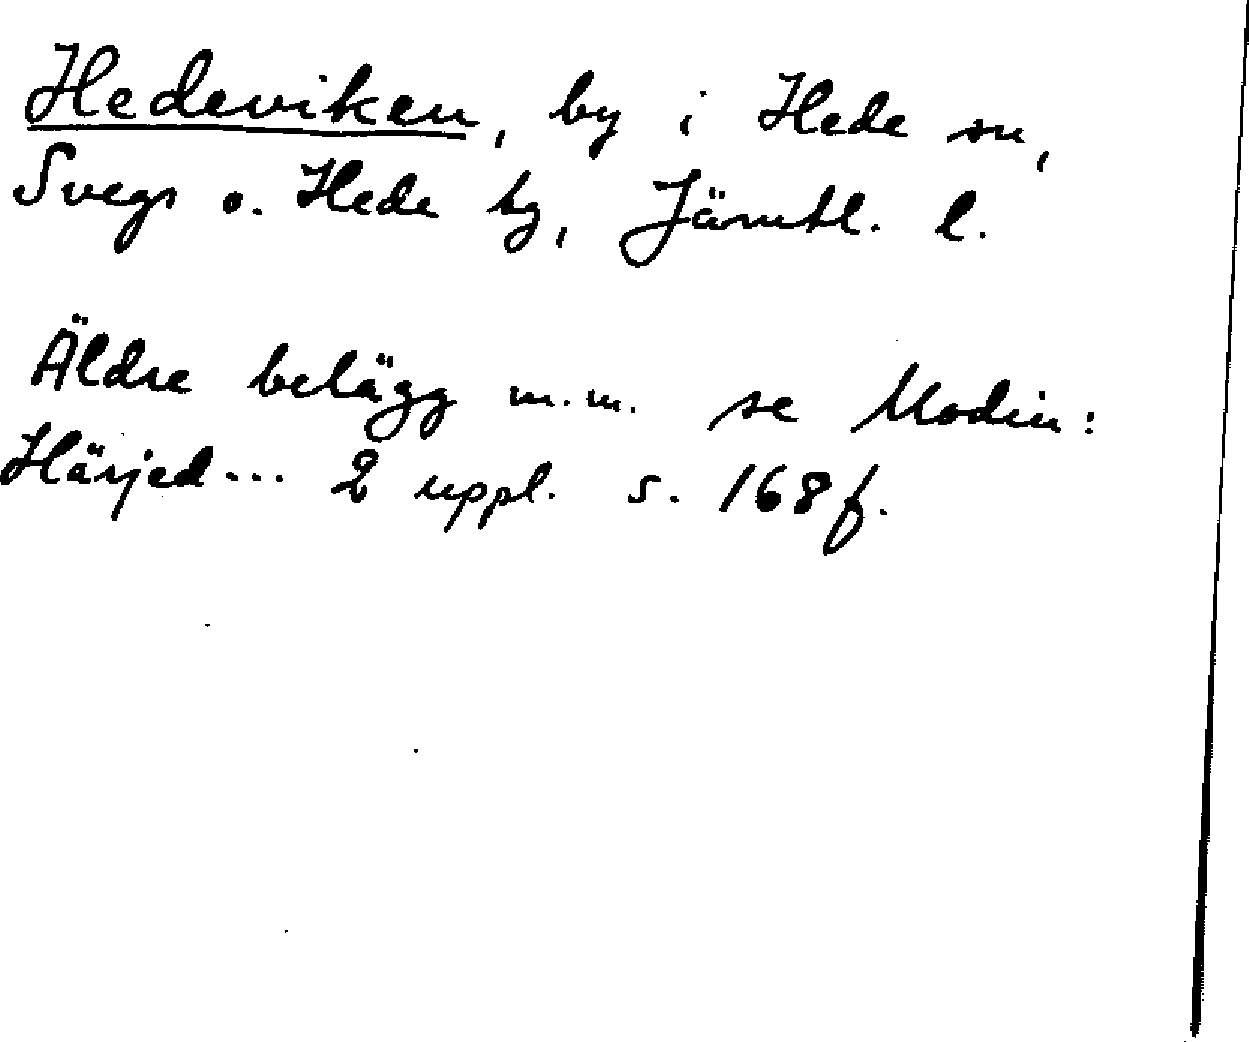 Hedeviken, by i Hede sn,
Svegs o. Hede tg, Jämtl. l.
Äldre belägg m.m. se Modin:
Härjed... 2 uppl. s. 168f.